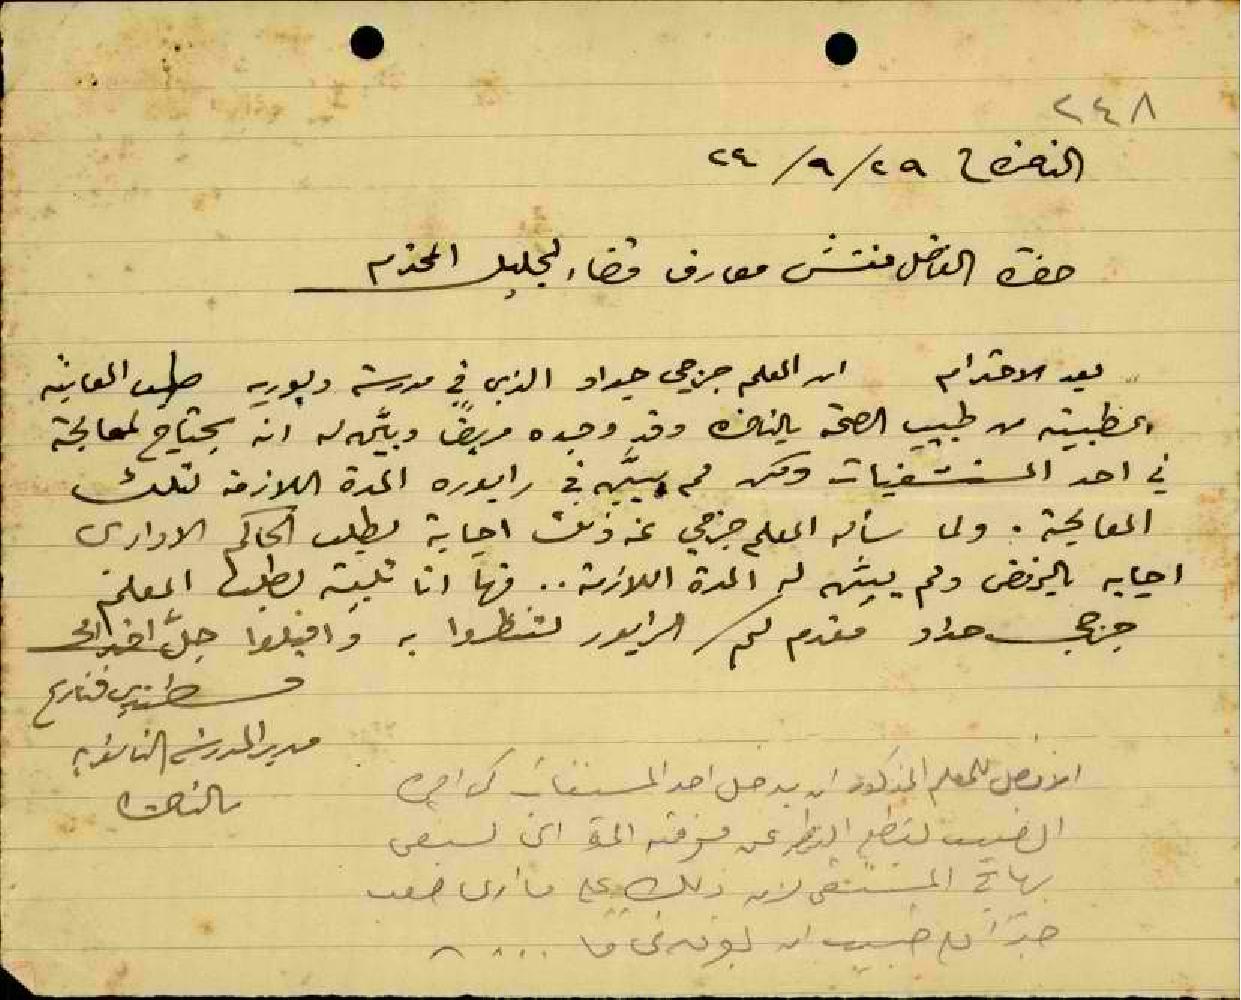 ٢٤٨
الناصرة في ٢٩/٩/٢٤
حضرة الفاضل مفتش معارف قضاء الجليل المحترم
بعد الاحترام ان المعلم جزجي حداد الذي في مدرسة دبورية طلب المعاينة
الطبية من طبيب الصحة بالناصرة وقد وجده مريضًا وبيَّن له انه يحتاج لمعالجة
في احد المستشفيات ولكن لم يبيَّن في رابوره المدة اللازمة لتلك
المعالجة . ولما سأله المعلم جزجي عن ذلك اجابة لطلب الحاكم الاداري
اجابه بالرفض ولم يبين له المدة اللازمة .. فها انا تلبية لطلب المعلم
جرجي حداد مقدم لكم الرابور لتنظروا به واقبلوا جلَّ احترامي
قسطندي قنازع
مدير المدرسة الثانوية
بالناصرة
الافضل للمعلم المذكور ان يدخل احد المستشفيات كما اخبره
الطبيب بقطع النظر عن معرفته المدة التي سيبقى
بها في المستشفى لان ذلك على ما ارى صعب
جدًا على طبيب ان